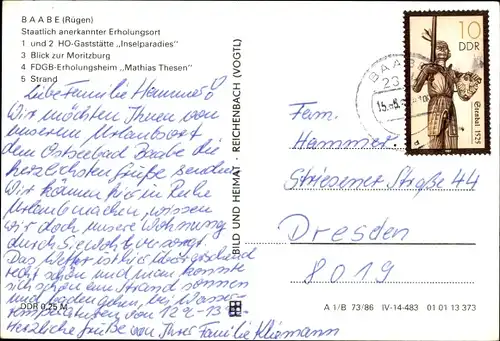 BAABE (Rügen)
Staatlich anerkannter Erholungsort
1 und 2 HO-Gaststätte „Inselparadies"
3 Blick zur Moritzburg
4 FDGB-Erholungsheim „Mathias Thesen"
5 Strand
Liebe Familie Hammer!
Wir möchten Ihnen von
unserem Urlaubsort
dem Ostseebad Baabe die
herzlichsten Grüße senden
Wir können hier in Ruhe
Urlaub machen, wissen
wir doch unsere Wohnung
durch Sie wohl versorgt.
Das Wetter ist hier überwiegend
recht schön und man konnte
sich schon am Strand sonnen
und baden gehen, bei Wasser-
temperaturen von 12 -13
Herzliche Grüße von Ihrer Familie Kliemann
DDR 0,25 M
BILD UND HEIMAT · REICHENBACH (VOGTL)
10
DDR
Stendal 1525
BAABE
23
15.-8.
Familie
Hammer
Striesener Straße 44
Dresden
8019
A 1/B 73/86 IV-14-483 01 01 13 373